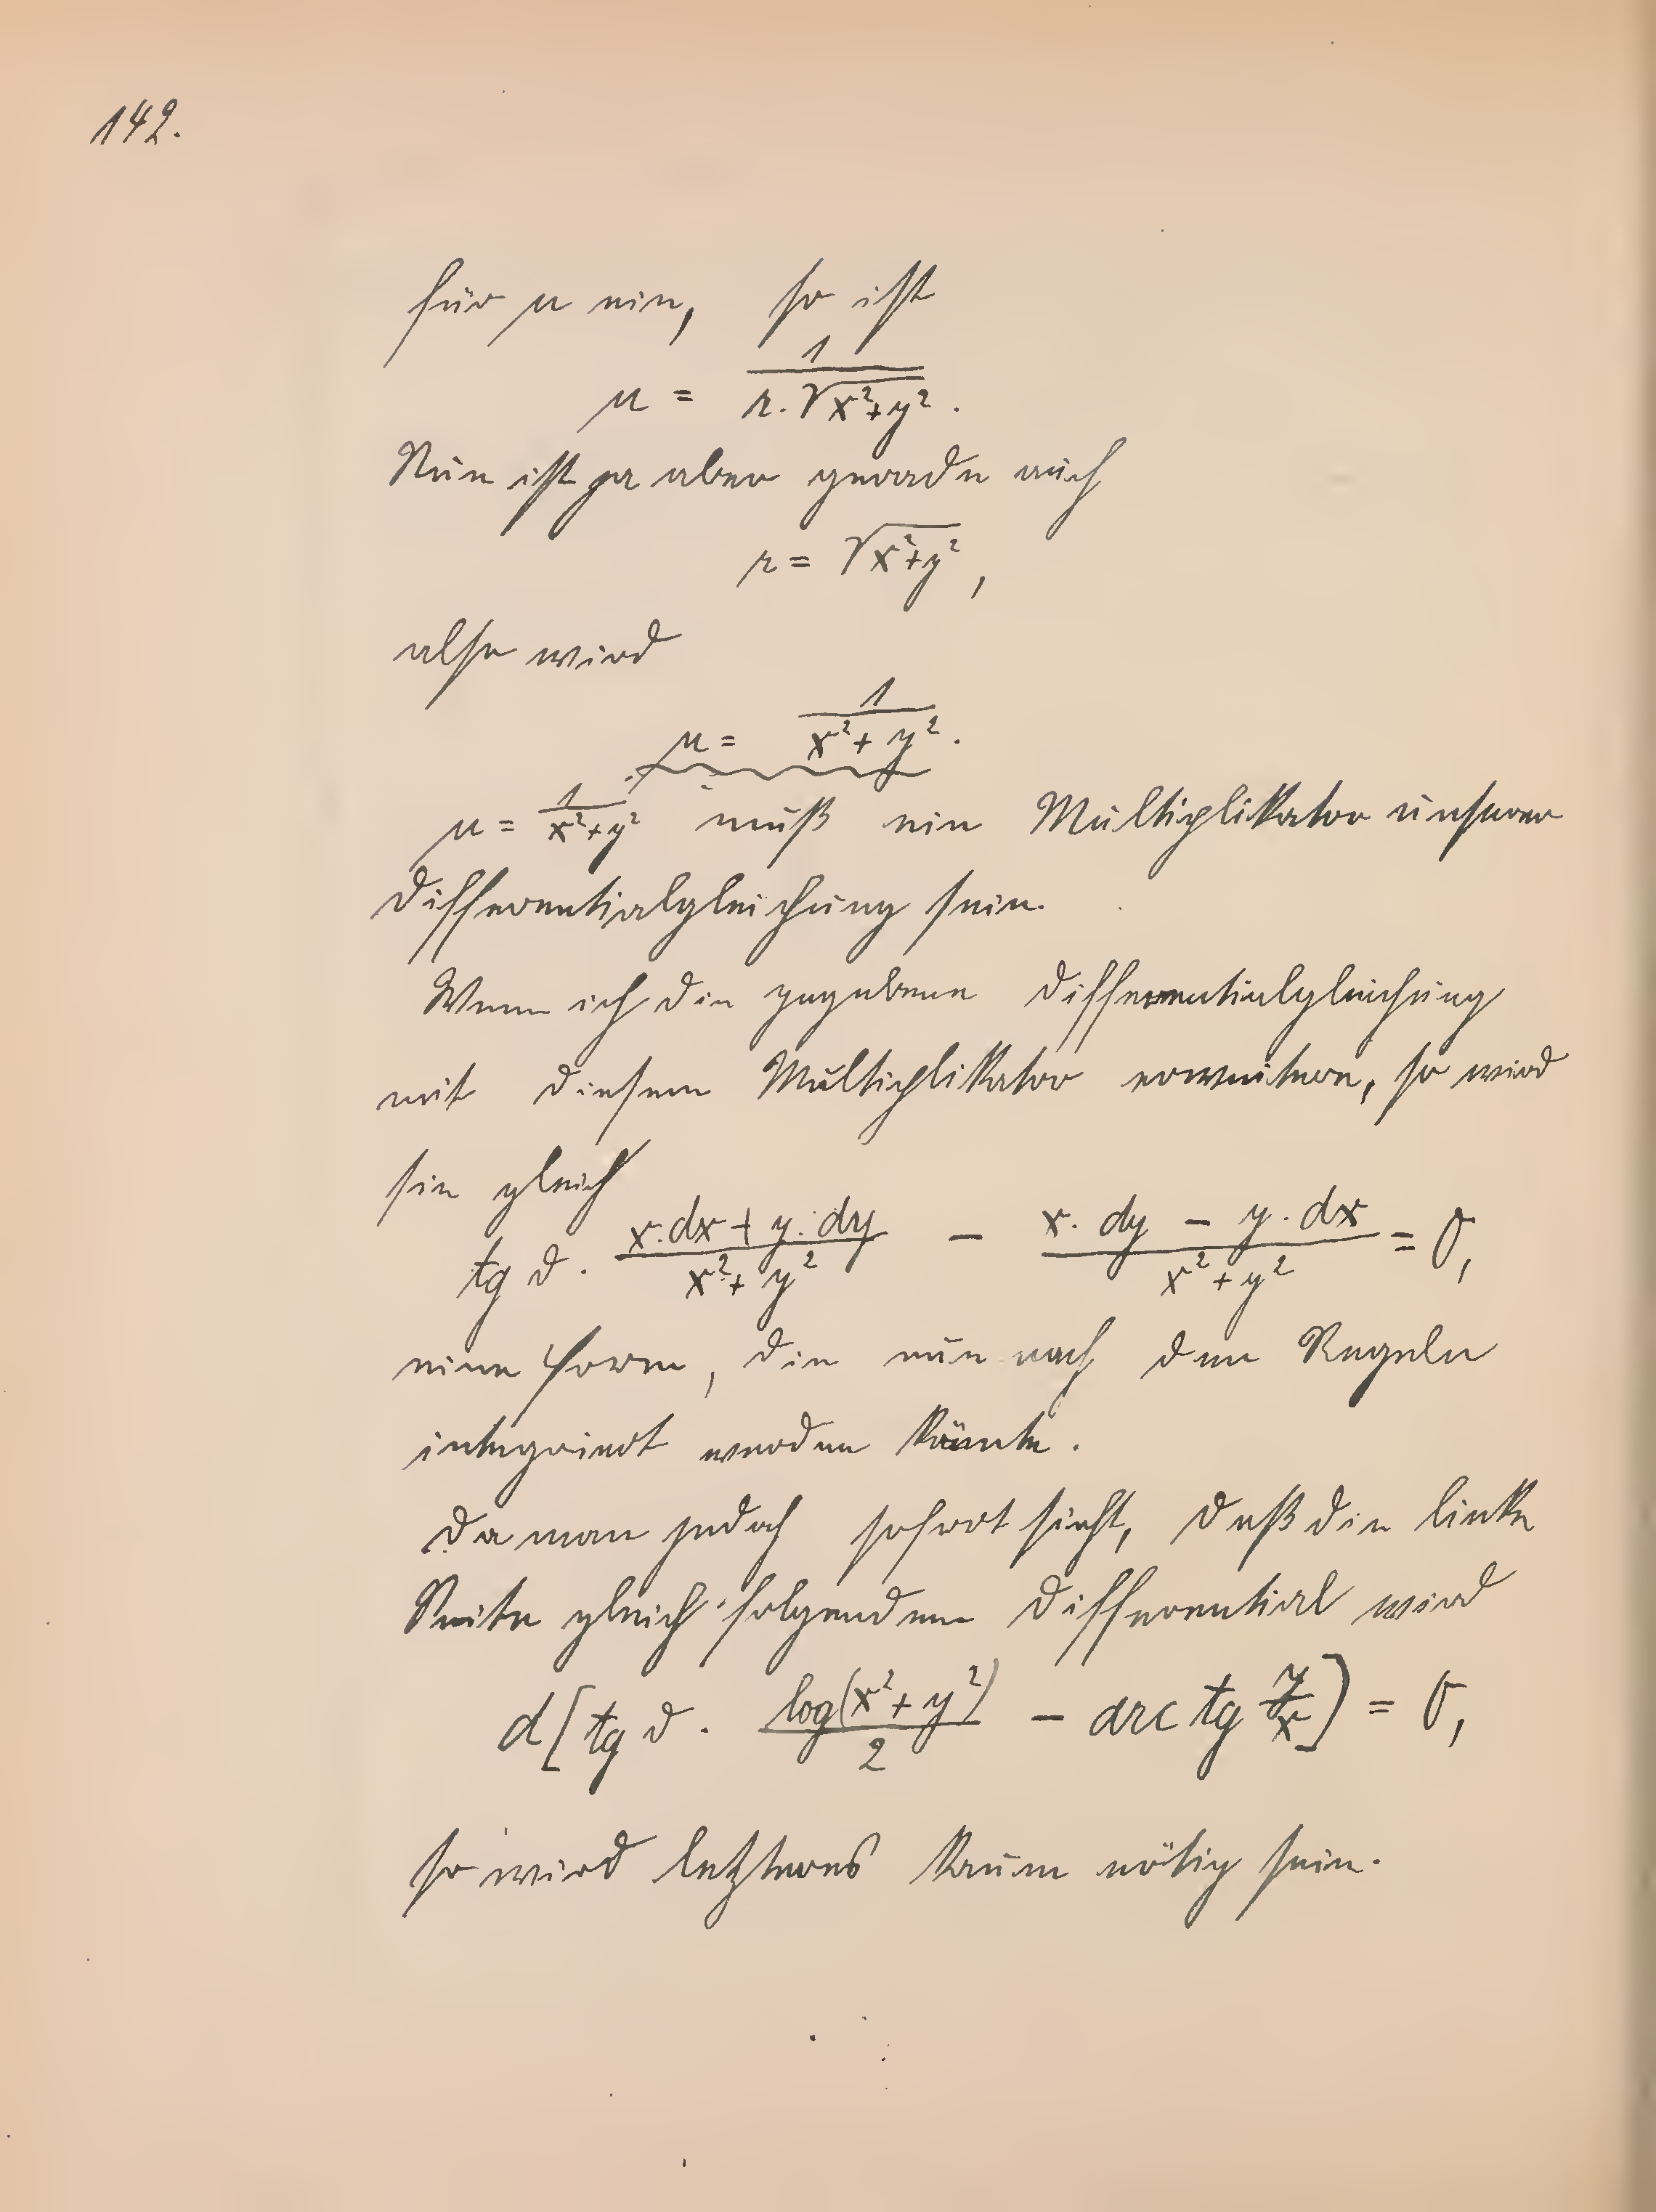 142.
für μ ein, so ist
μ = 1/(r.√(x²+y²)).
Nun ist ja aber gerade auch
r = √(x²+y²),
also wird
μ = 1/(x²+y²).
μ = 1/(x²+y²) muß ein Multiplikator unserer
Differentialgleichung sein.
Wenn ich die gegebene Differentialgleichung
mit diesem Multiplikator erweitere, so wird
sie gleich
tg ϑ . (x.dx + y.dy)/(x²+y²) − (x.dy − y.dx)/(x²+y²) = 0,
eine Form, die nun nach den Regeln
integriert werden könnte.
Da man jedoch sofort sieht, daß die linke
Seite gleich folgendem Differential wird
d[tg ϑ . log(x²+y²)/2 − arc tg y/x] = 0,
so wird letzteres kaum nötig sein.